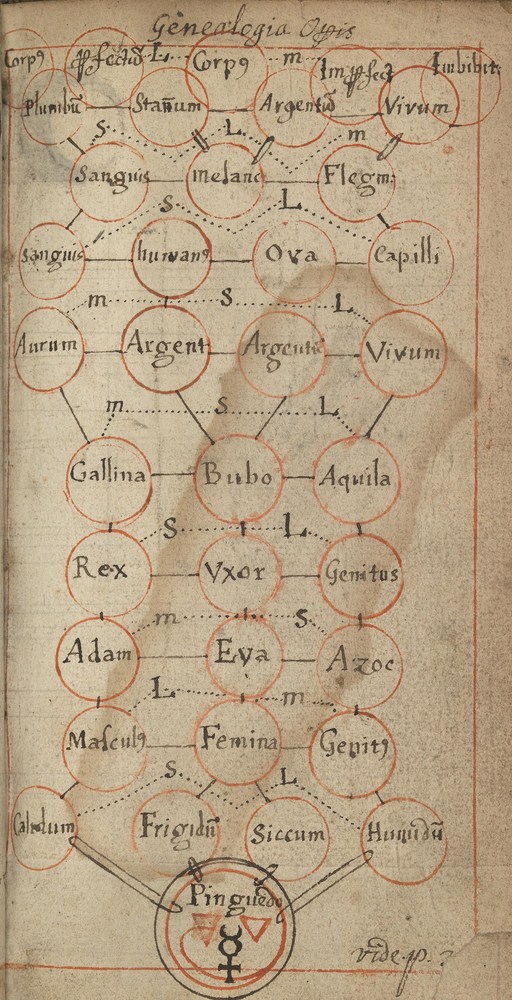 Genealogia Opis
Corpꝯ ꝑfectū L Corpꝯ m Imꝑfect Imbibit
Plumbū Stañum Argentū Vivum
S L m
Sanguis melanc Flegm
S L
Sanguis humanꝯ Ova Capilli
m S L
Aurum Argent Argentū Vivum
m S L
Gallina Bubo Aquila
S L
Rex Vxor Genitus
m S
Adam Eva Azoc
L m
Masculꝯ Femina Genitꝯ
S L
Calidum Frigidū Siccum Humidū
Pinguedo
☿
vide pp. ?